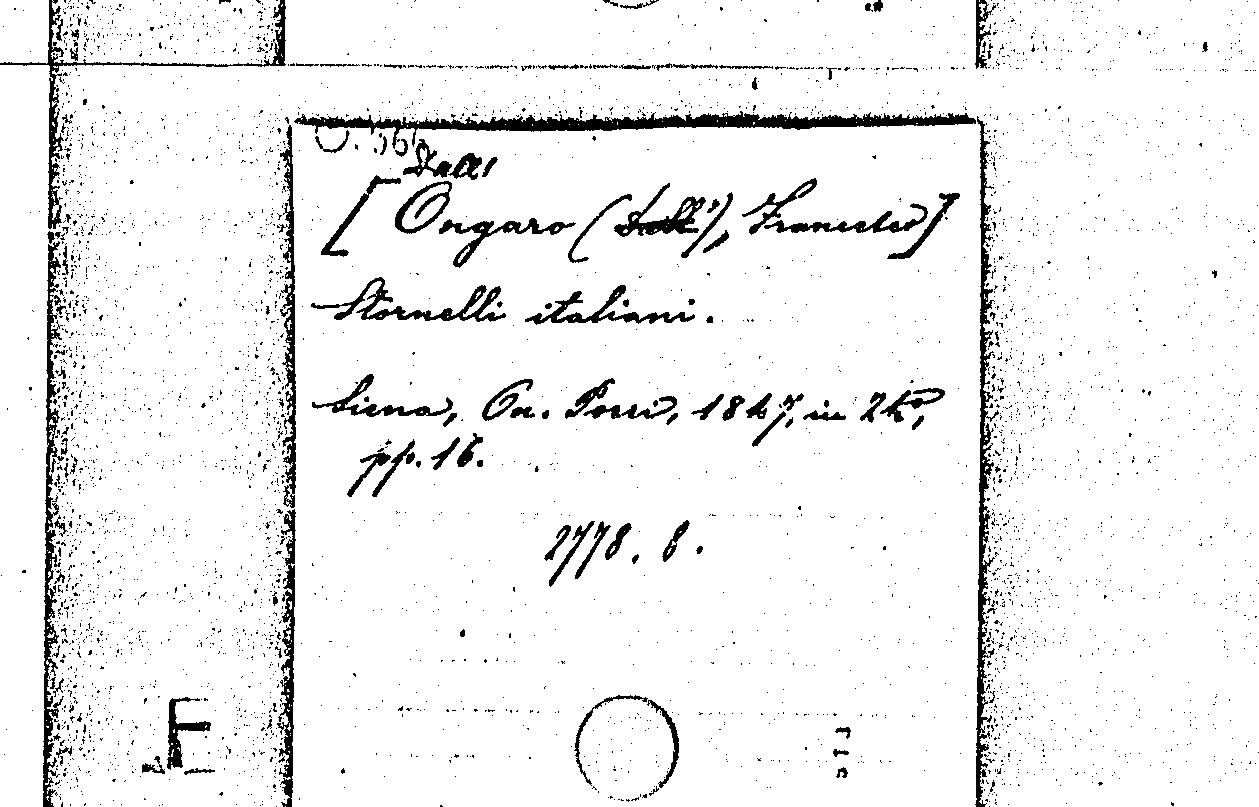 Dall'
[Ongaro (Dall'), Francesco]
Stornelli italiani.
Siena, On. Porri, 1847, in 24°,
pp. 16.
2778. 8.
F